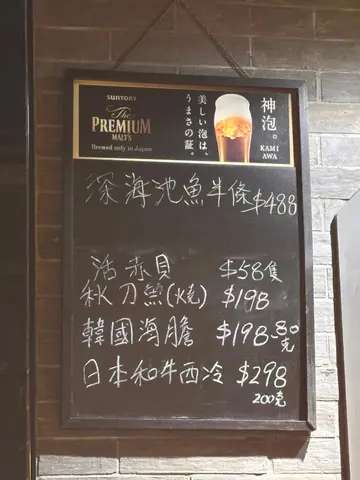 SUNTORY
The
PREMIUM
MALT'S
Brewed only in Japan
美しい泡は、
うまさの証。
神泡。
KAMI
AWA
深海池魚半條 $488
活赤貝 $58隻
秋刀魚(火堯) $198
韓國海膽 $198-80克
日本和牛西冷 $298
200克